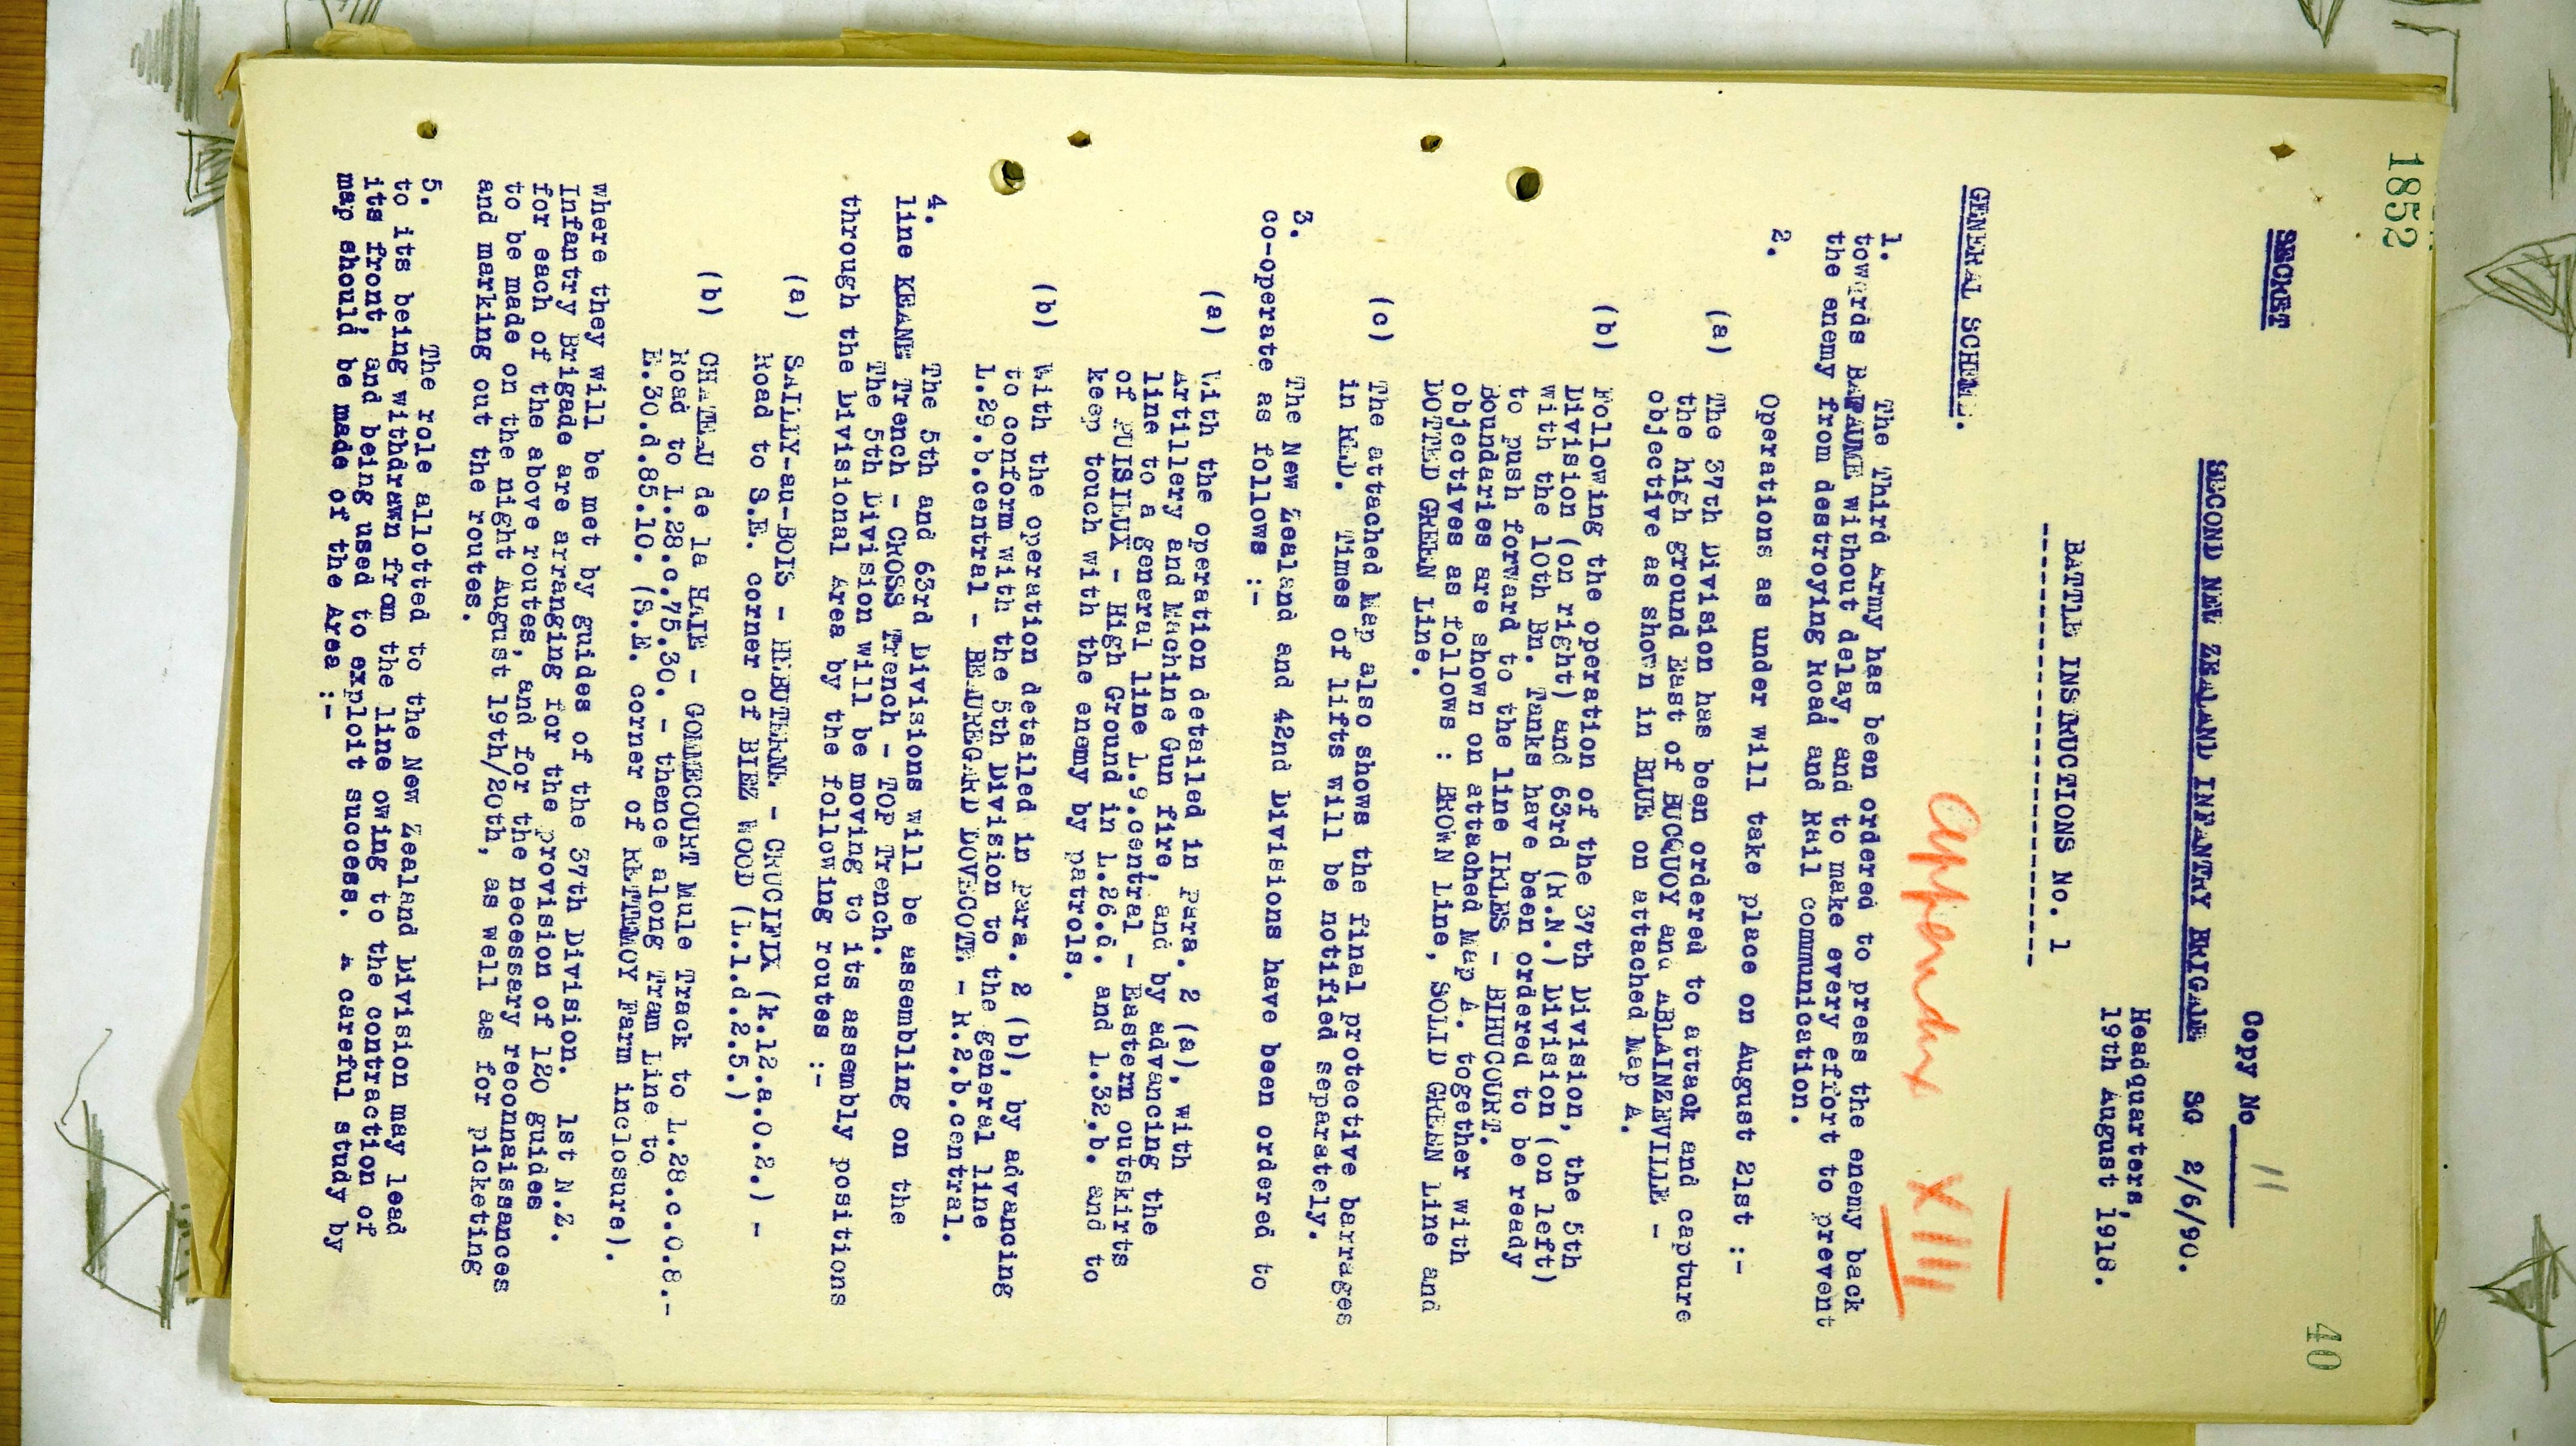 1852
40
SECRET
Copy No 11
SECOND NEW ZEALAND INFANTRY BRIGADE SG 2/6/90.
Headquarters,
19th August 1918.
BATTLE INSTRUCTIONS No. 1
Appendix XIII
GENERAL SCHEME.
1. The Third Army has been ordered to press the enemy back
towards BAPAUME without delay, and to make every effort to prevent
the enemy from destroying Road and Rail communication.
2. Operations as under will take place on August 21st :-
(a) The 37th Division has been ordered to attack and capture
the high ground East of BUCQUOY and ABLAINZEVILLE -
objective as shown in BLUE on attached Map A.
(b) Following the operation of the 37th Division, the 5th
Division (on right) and 63rd (R.N.) Division (on left)
with the 10th Bn. Tanks have been ordered to be ready
to push forward to the line IRLES - BIHUCOURT.
Boundaries are shown on attached Map A. together with
objectives as follows : BROWN Line, SOLID GREEN Line and
DOTTED GREEN Line.
(c) The attached Map also shows the final protective barrages
in RED. Times of lifts will be notified separately.
3. The New Zealand and 42nd Divisions have been ordered to
co-operate as follows :-
(a) With the operation detailed in Para. 2 (a), with
Artillery and Machine Gun fire, and by advancing the
line to a general line L.9.central - Eastern outskirts
of PUISIEUX - High Ground in L.26.d. and L.32.b. and to
keep touch with the enemy by patrols.
(b) With the operation detailed in para. 2 (b), by advancing
to conform with the 5th Division to the general line
L.29.b.central - BEAUREGARD DOVECOTE - R.2.b.central.
4. The 5th and 63rd Divisions will be assembling on the
line KEANE Trench - CROSS Trench - TOP Trench.
The 5th Division will be moving to its assembly positions
through the Divisional Area by the following routes :-
(a) SAILLY-au-BOIS - HEBUTERNE - CRUCIFIX (K.12.a.0.2.) -
Road to S.E. corner of BIEZ WOOD (L.1.d.2.5.)
(b) CHATEAU de la HAIE - GOMMECOURT Mule Track to L.28.c.0.8.-
Road to L.28.c.75.30. - thence along Tram Line to
E.30.d.85.10. (S.E. corner of RETTEMOY Farm inclosure).
where they will be met by guides of the 37th Division. 1st N.Z.
Infantry Brigade are arranging for the provision of 120 guides
for each of the above routes, and for the necessary reconnaissances
to be made on the night August 19th/20th, as well as for picketing
and marking out the routes.
5. The role allotted to the New Zealand Division may lead
to its being withdrawn from the line owing to the contraction of
its front, and being used to exploit success. A careful study by
map should be made of the Area :-